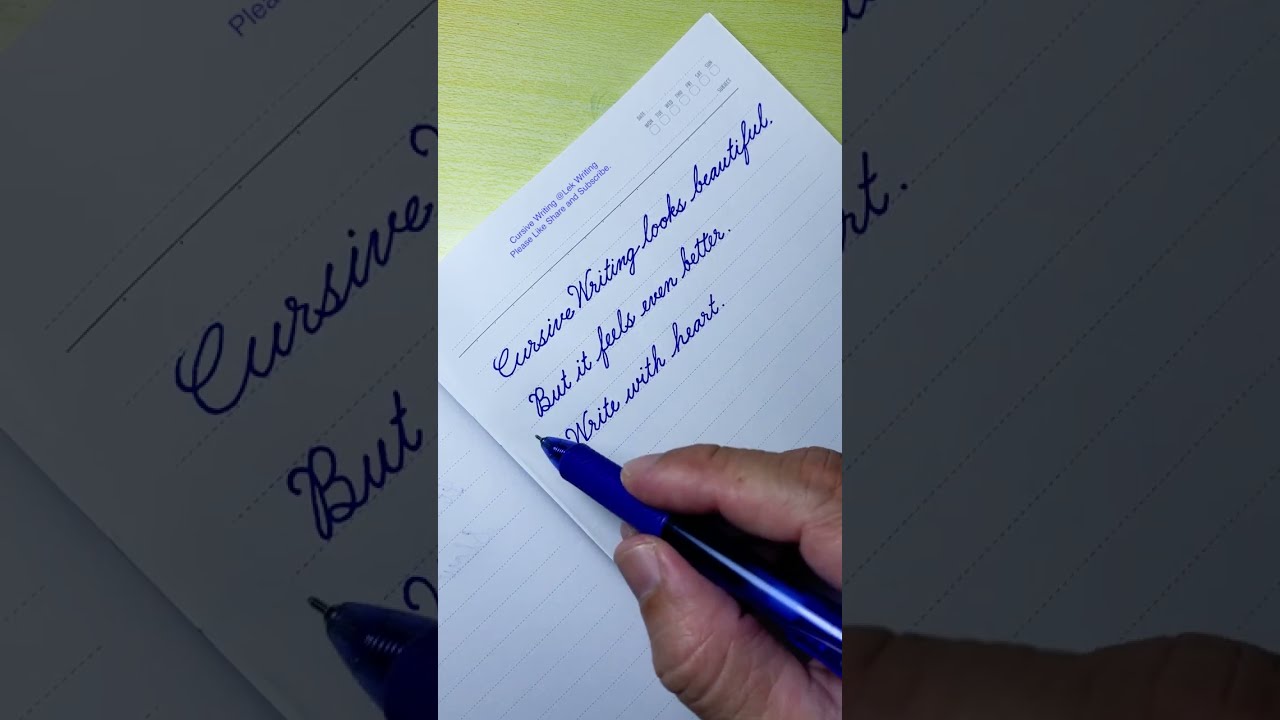 DATE
MON TUE WED THU FRI SAT SUN
SUBJECT
Cursive Writing @Lek Writing
Please Like Share and Subscribe.
Cursive Writing looks beautiful.
But it feels even better.
Write with heart.